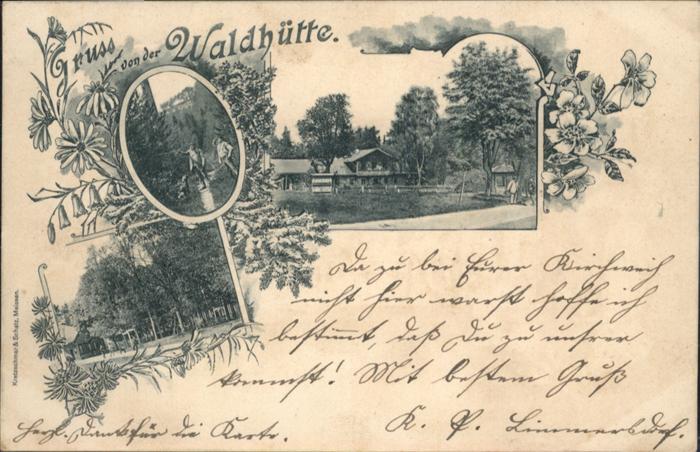 Gruss von der Waldhütte.
Kretzschmar & Schatz, Meissen.
Da zu bei Eurer Kirchweih
nicht hier warst hoffe ich
bestimmt, daß Du zu unsrer
kommst! Mit bestem Gruß
K. P. Limmersdorf.
Herz. Dank für die Karte.